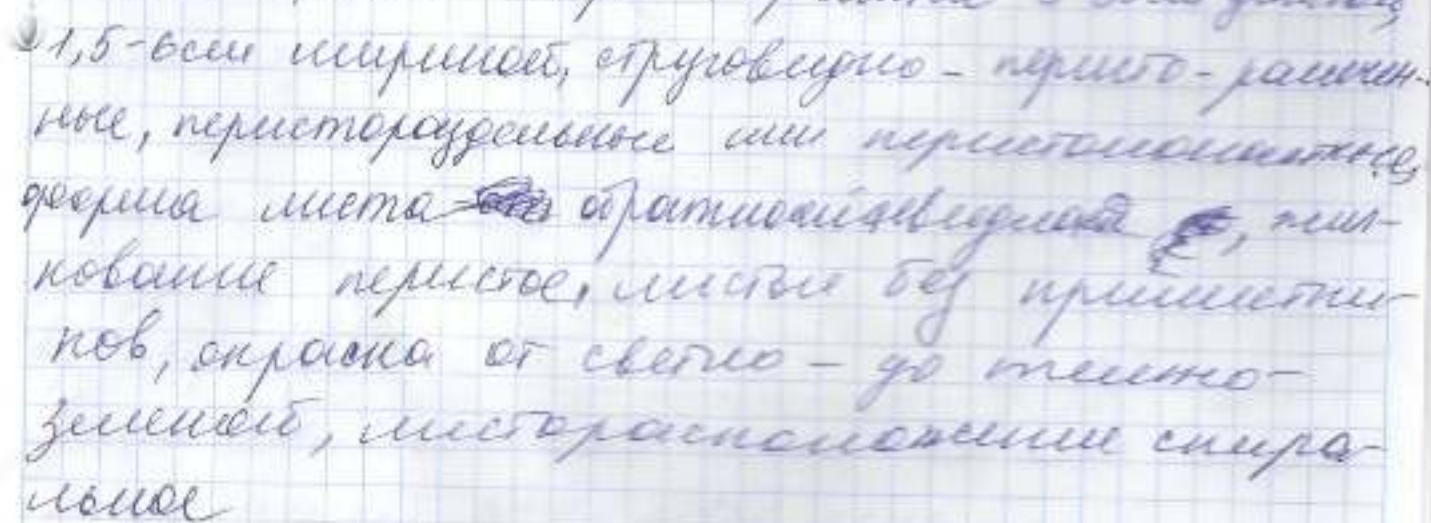 1,5-6см шириной, струговидно-перисто-рассечен-
ные, перистораздельные или перистолопастные,
форма листа обратнояйцевидная, жил-
кование перистое, листья без прилистни-
ков, окраска от светло - до темно-
зеленой, листорасположение спира-
льное